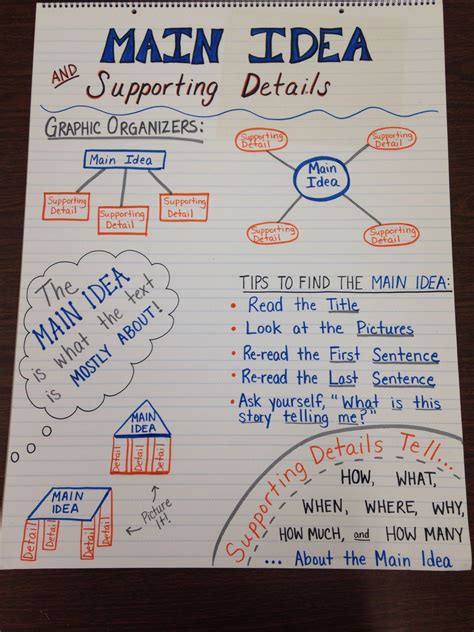 MAIN IDEA
AND Supporting Details
GRAPHIC ORGANIZERS:
Main Idea
Supporting Detail
Supporting Detail
Supporting Detail
Supporting Detail
Supporting Detail
Main Idea
Supporting Detail
Supporting Detail
The
MAIN IDEA
is what the text
is MOSTLY ABOUT!
TIPS TO FIND THE MAIN IDEA:
• Read the Title
• Look at the Pictures
• Re-read the First Sentence
• Re-read the Last Sentence
• Ask yourself, "What is this
story telling me?"
MAIN
IDEA
Detail
Detail
Detail
Detail
MAIN
IDEA
Detail
Detail
Detail
Detail
Picture
It!
Supporting Details Tell...
HOW, WHAT,
WHEN, WHERE, WHY,
HOW MUCH, and HOW MANY
... About the Main Idea